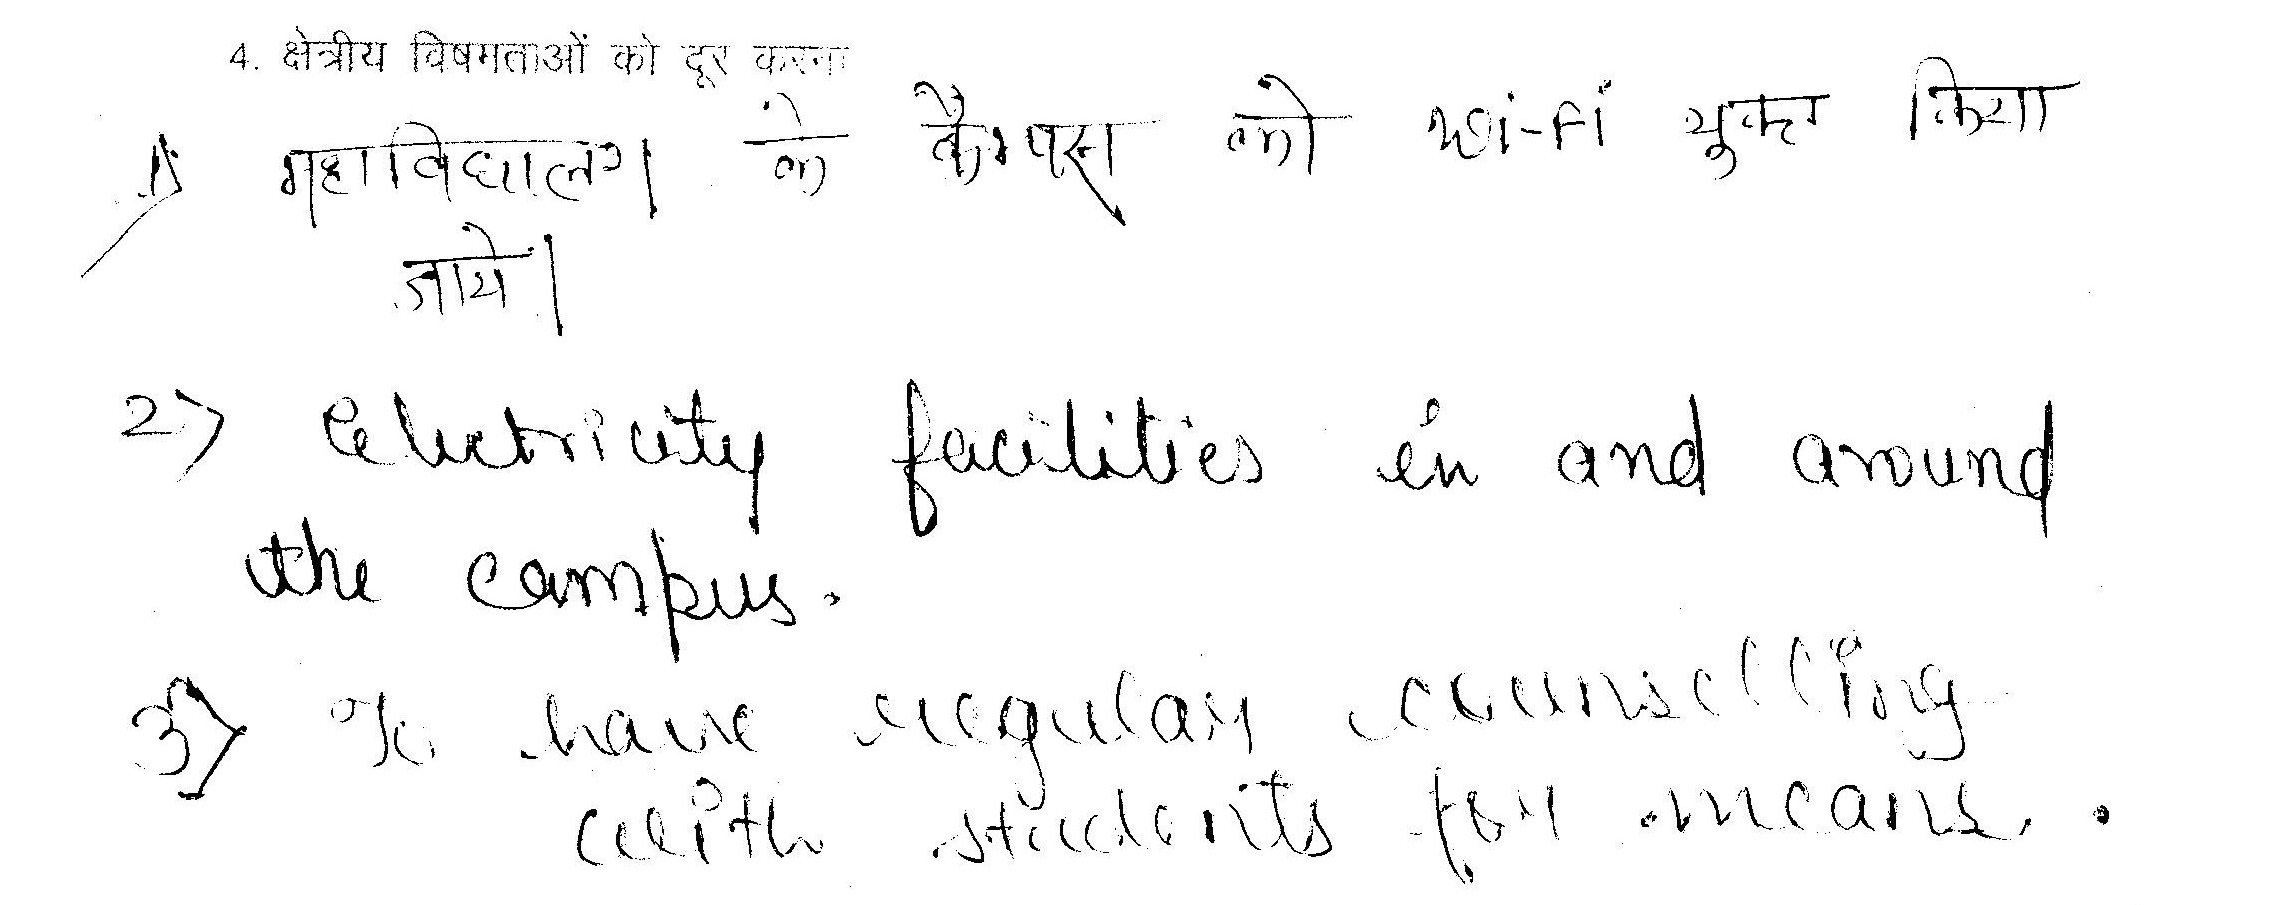 4. क्षेत्रीय विषमताओं को दूर करना
1) महाविद्यालय के कैम्पस को Wi-Fi युक्त किया
जाये।
2) electricity facilities in and around
the campus.
3) To have regular counselling
with students for means.